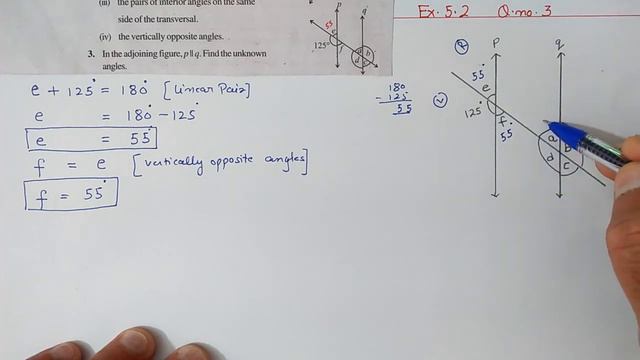 (iii) the pairs of interior angles on the same
side of the transversal.
(iv) the vertically opposite angles.
3. In the adjoining figure, p || q. Find the unknown
angles.
p
q
55
e
125°
f
a
b
d
Ex. 5.2 Q. no. 3
e + 125° = 180° [Linear Pair]
e = 180° - 125°
e = 55°
f = e [vertically opposite angles]
f = 55°
180
- 125
55
P
q
55°
e
125°
f
55°
a
b
d
c